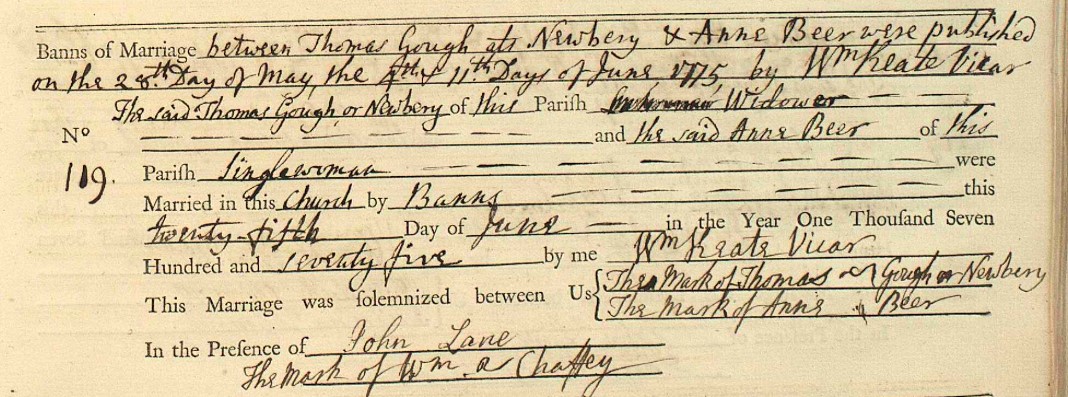 Banns of Marriage between Thomas Gough als Newbery & Anne Beer were published
on the 28.th Day of May, the 4th & 11th Days of June 1775, by Wm Keate Vicar
The said Thomas Gough or Newbery of this Parish Widower
No
and the said Anne Beer of this
119.
Parish Singlewoman were
Married in this Church by Banns this
twenty-fifth Day of June in the Year One Thousand Seven
Hundred and seventy five by me Wm Keate Vicar
This Marriage was solemnized between Us { The Mark of Thomas Gough or Newbery
The Mark of Anne Beer
In the Presence of John Lane
The Mark of Wm. Chaffey